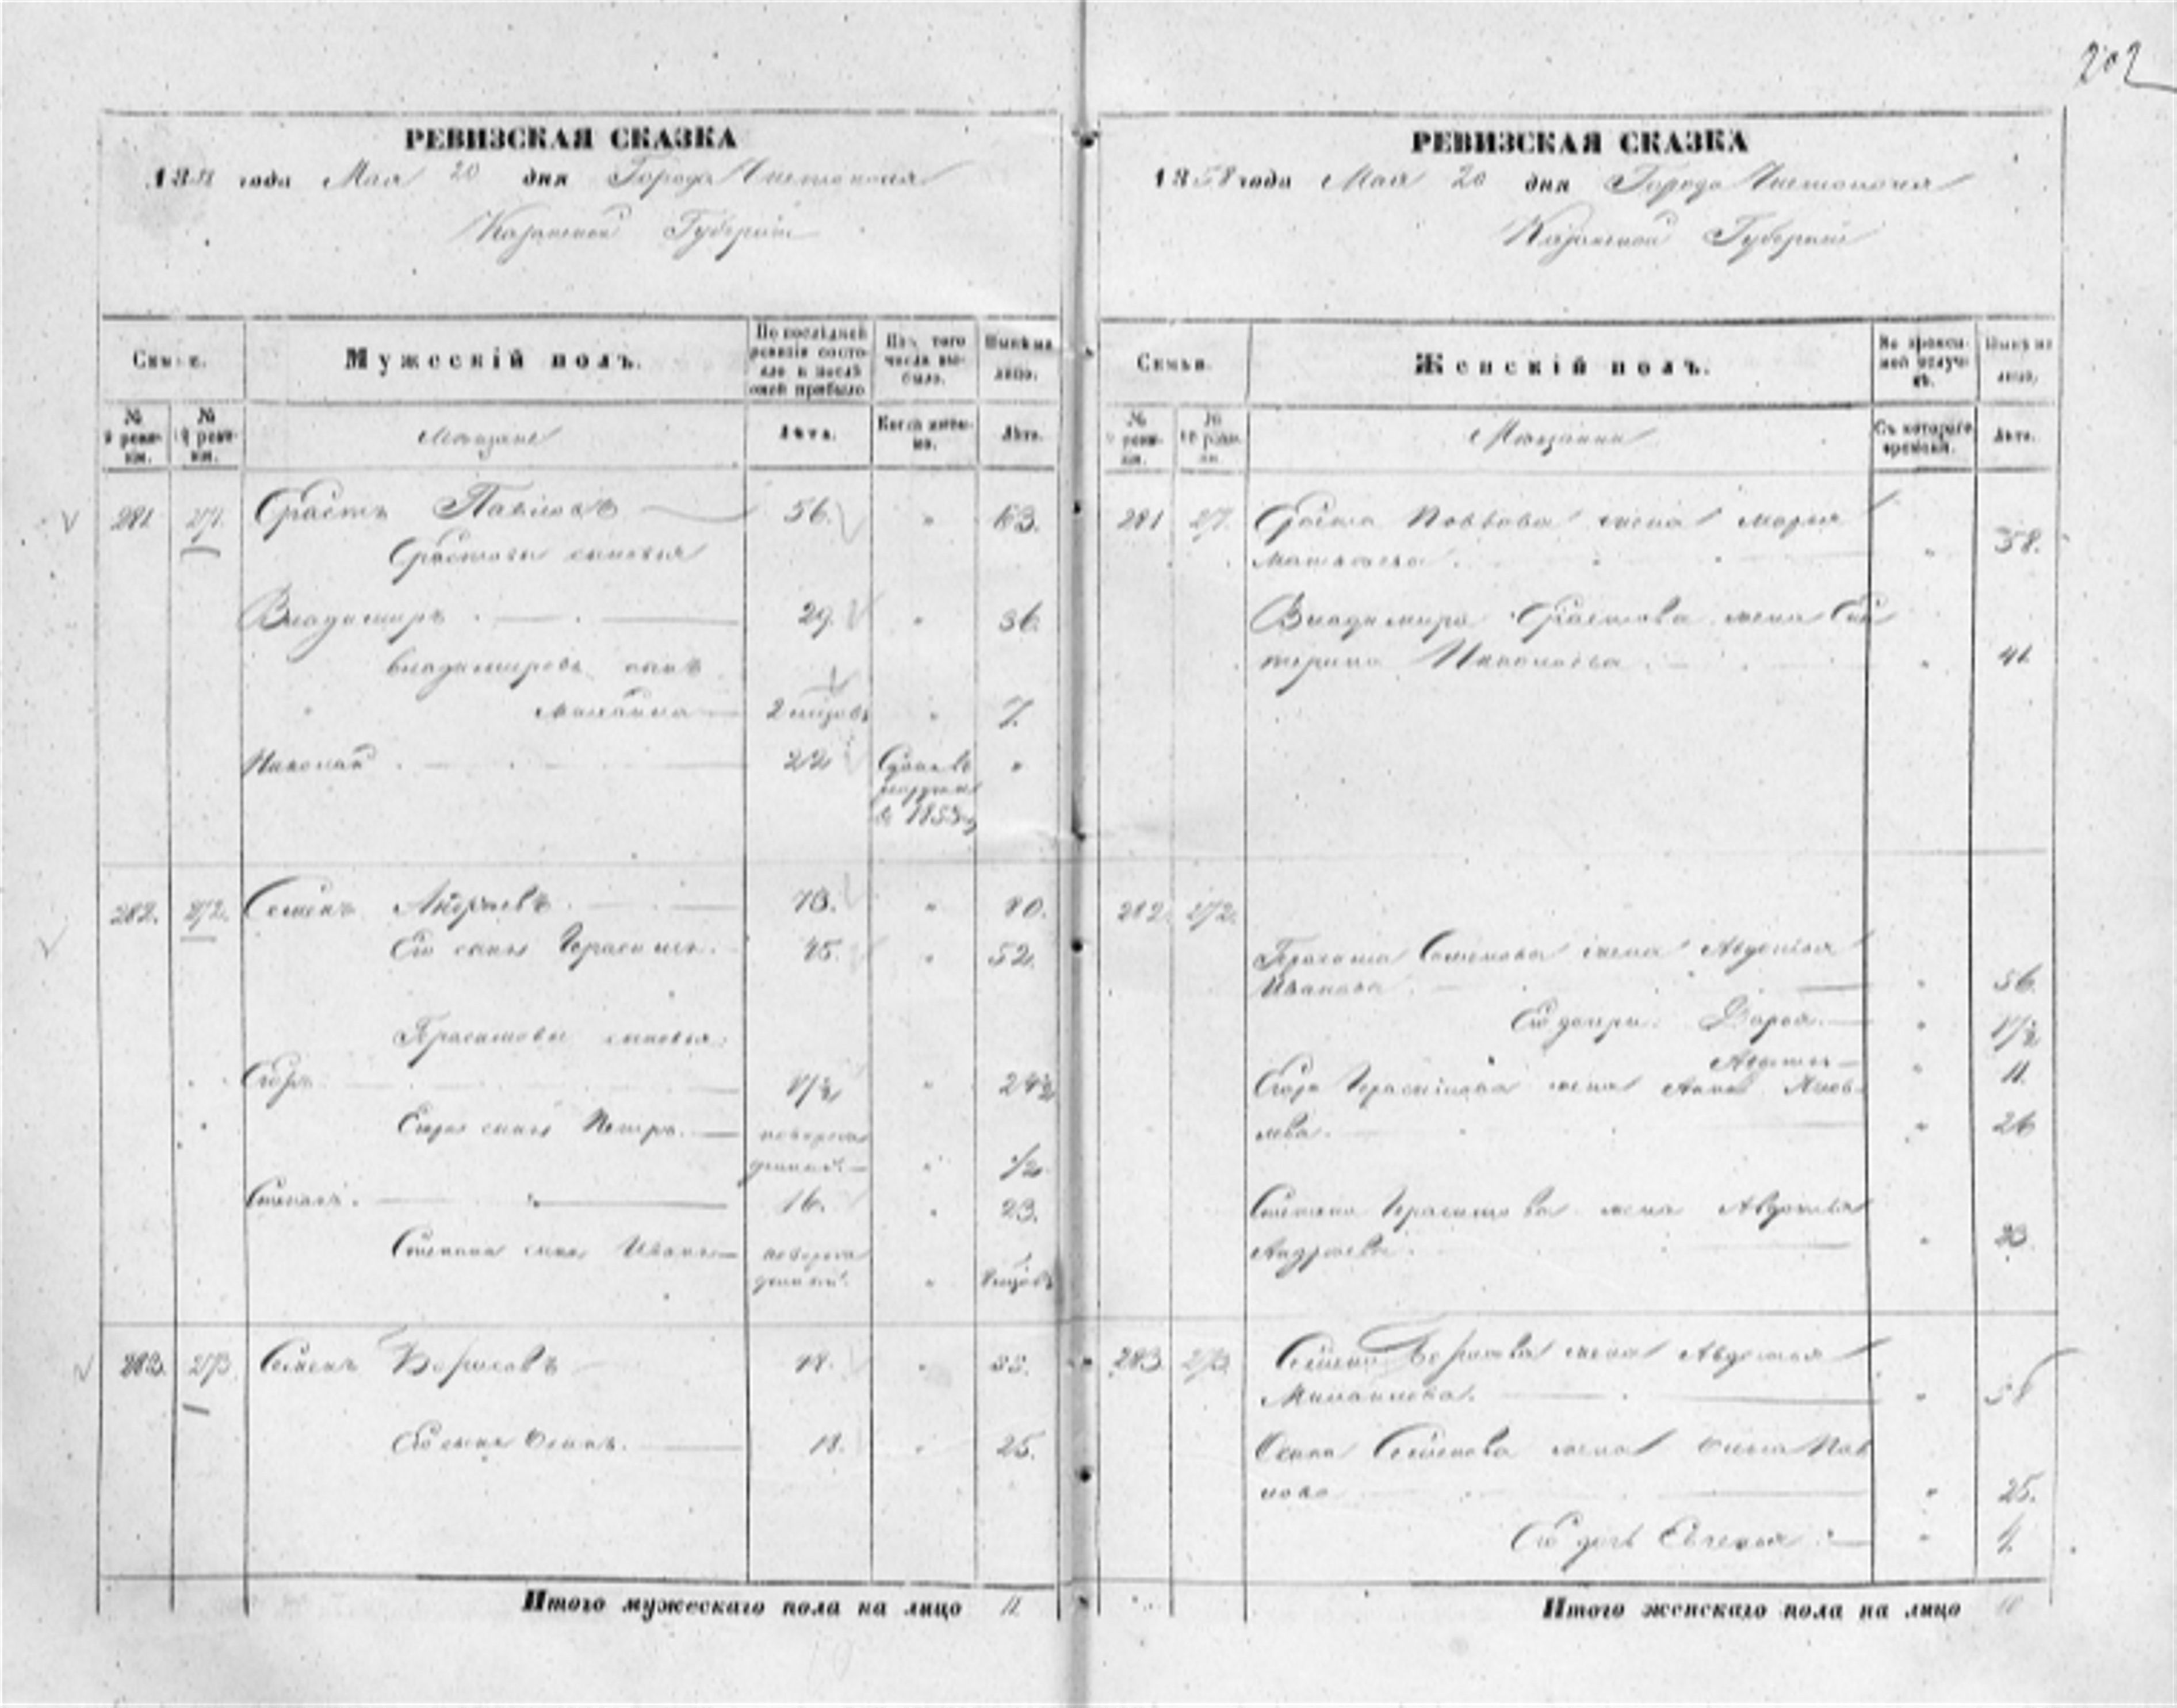 202
РЕВИЗСКАЯ СКАЗКА
1858 года Мая 20 дня Города Чистополя
Казанской Губернiи
Семьи.
Мужескiй полъ.
По послѣдней ревизiи состояло и послѣ оной прибыло
Изъ того числа выбыло.
Нынѣ на лицо.
№ ревизiи.
№ ревизiи.
Мещане
Лѣта.
Когда именно.
Лѣта.
281 271. Ерастъ Павловъ 56. " 63.
Ерастовы сыновья
Владимиръ 29. " 36.
Владимировъ сынъ
Михаила 2 " 7.
Николай 22 "
въ 1853
282. 272. Семенъ Андреевъ 73. " 80.
Его сынъ Герасимъ. 45. " 52.
Герасимовы сыновья:
Егоръ 17½ " 24½
Егора сынъ Петръ. новорож
денный. " ½
Степанъ. 16. " 23.
Степана сынъ Иванъ новорож
денный. "
283. 273. Семенъ Борисовъ "
Его сынъ Осипъ. 18. " 25.
Итого мужескаго пола на лицо 11
РЕВИЗСКАЯ СКАЗКА
1858 года Мая 20 дня Города Чистополя
Казанской Губернiи
Семьи.
Женскiй полъ.
Во временной отлучкѣ.
Нынѣ на лицо.
№ ревизiи.
№ ревизiи.
Мещанки
Съ котораго времени.
Лѣта.
281 271. Ераста Павлова жена Марья
" 58.
Владимира Ерастова жена Ека
терина Николаева " 41.
282. 272.
Герасима Семенова жена Авдотья
Иванова " 56.
Его дочери: Дарья. " 17½
" 11.
Егора Герасимова жена Анна
" 26
Степана Герасимова жена Авдотья
Андреева. " 23.
283. 273. Семена Борисова жена Авдотья
Михаилова. " 58
Осипа Семенова жена Пав
лова " 25.
Его дочь Евгенья "
Итого женскаго пола на лицо 10